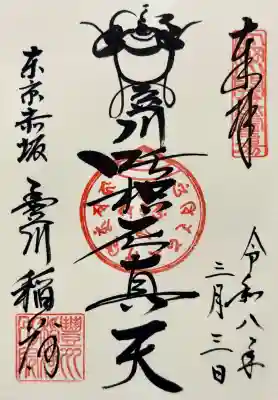 奉拝
令和八年
三月三日
豊川吒枳尼真天
東京赤坂 豊川稲荷